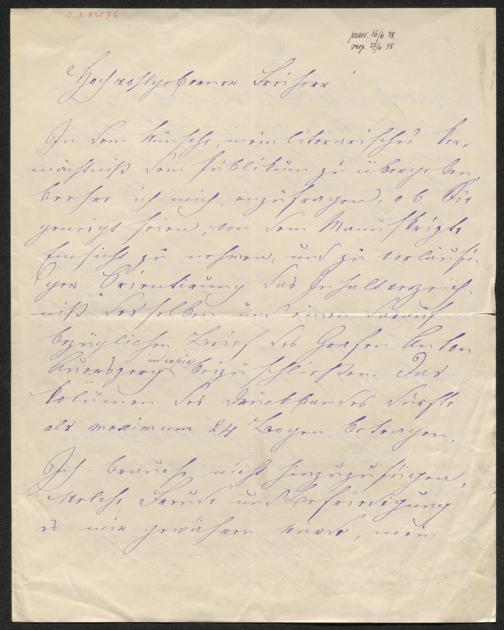 praes. 16/6 78
resp. 27/6 78
Hochwohlgeborener Freiherr!
In dem Wunsche, mein literarisches Ver-
mächtniß dem Publikum zu übergeben,
beehre ich mich, anzufragen, ob Sie
geneigt seien, von dem Manuskripte
Einsicht zu nehmen, und zu vorläufi-
ger Orientirung das Inhaltsverzeich-
niß desselben und einen darauf
bezüglichen Brief des Grafen Anton
Auersperg in copia beizuschließen. Das
Volumen des Druckbandes dürfte
als maximum 24 Bogen betragen.
Ich brauche nicht hinzuzufügen,
welche Freude und Befriedigung
es mir gewähren würde, mein